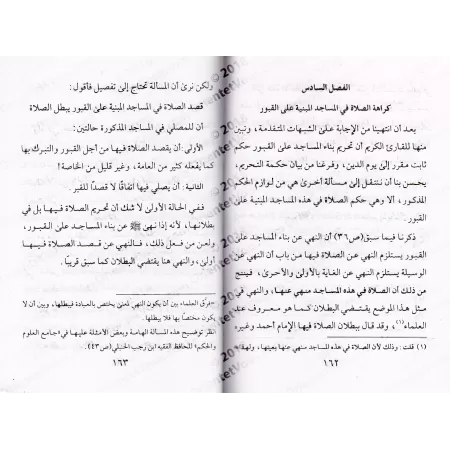 الفصل السادس
كراهة الصلاة في المساجد المبنية على القبور
بعد أن انتهينا من الإجابة على الشبهات المتقدمة، وتبين
منها للقارئ الكريم أن تحريم بناء المساجد على القبور حكم
ثابت مقرر إلى يوم الدين، وفرغنا من بيان حكمة التحريم،
يحسن بنا أن ننتقل إلى مسألة أخرى هي من لوازم الحكم
المذكور، ألا وهي حكم الصلاة في هذه المساجد المبنية على
القبور.
ذكرنا فيما سبق(ص٣٦) أن النهي عن بناء المساجد على
القبور يستلزم النهي عن الصلاة فيها من باب أن النهي عن
الوسيلة يستلزم النهي عن الغاية بالأولى والأحرى، فينتج
من ذلك أن الصلاة في هذه المساجد منهي عنها، والنهي في
مثل هذا الموضع يقتضي البطلان كما هو معروف عند
العلماء(١)، وقد قال ببطلان الصلاة فيها الإمام أحمد وغيره
(١) قلت: وذلك لأن الصلاة في هذه المساجد منهي عنها بعينها، ولهذا
١٦٢
ولكن نرى أن المسألة تحتاج إلى تفصيل فأقول:
قصد الصلاة في المساجد المبنية على القبور يبطل الصلاة
أن للمصلي في المساجد المذكورة حالتين:
الأولى: أن يقصد الصلاة فيها من أجل القبور والتبرك بها
كما يفعله كثير من العامة، وغير قليل من الخاصة!
الثانية: أن يصلي فيها اتفاقًا لا قصدًا للقبر.
ففي الحالة الأولى لا شك أن تحريم الصلاة فيها بل في
بطلانها، لأنه إذا نهى ﷺ عن بناء المساجد على القبور،
ولعن من فعل ذلك، فالنهي عن قصد الصلاة فيها
أولى، والنهي هنا يقتضي البطلان كما سبق قريبًا.
فرق العلماء بين أن يكون النهي لمعنى يختص بالعبادة فيبطلها، وبين أن لا
يكون مختصًا بها فلا يبطلها.
انظر توضيح هذه المسألة الهامة وبعض الأمثلة عليها في «جامع العلوم
والحكم» للحافظ الفقيه ابن رجب الحنبلي(ص٤٣).
١٦٣